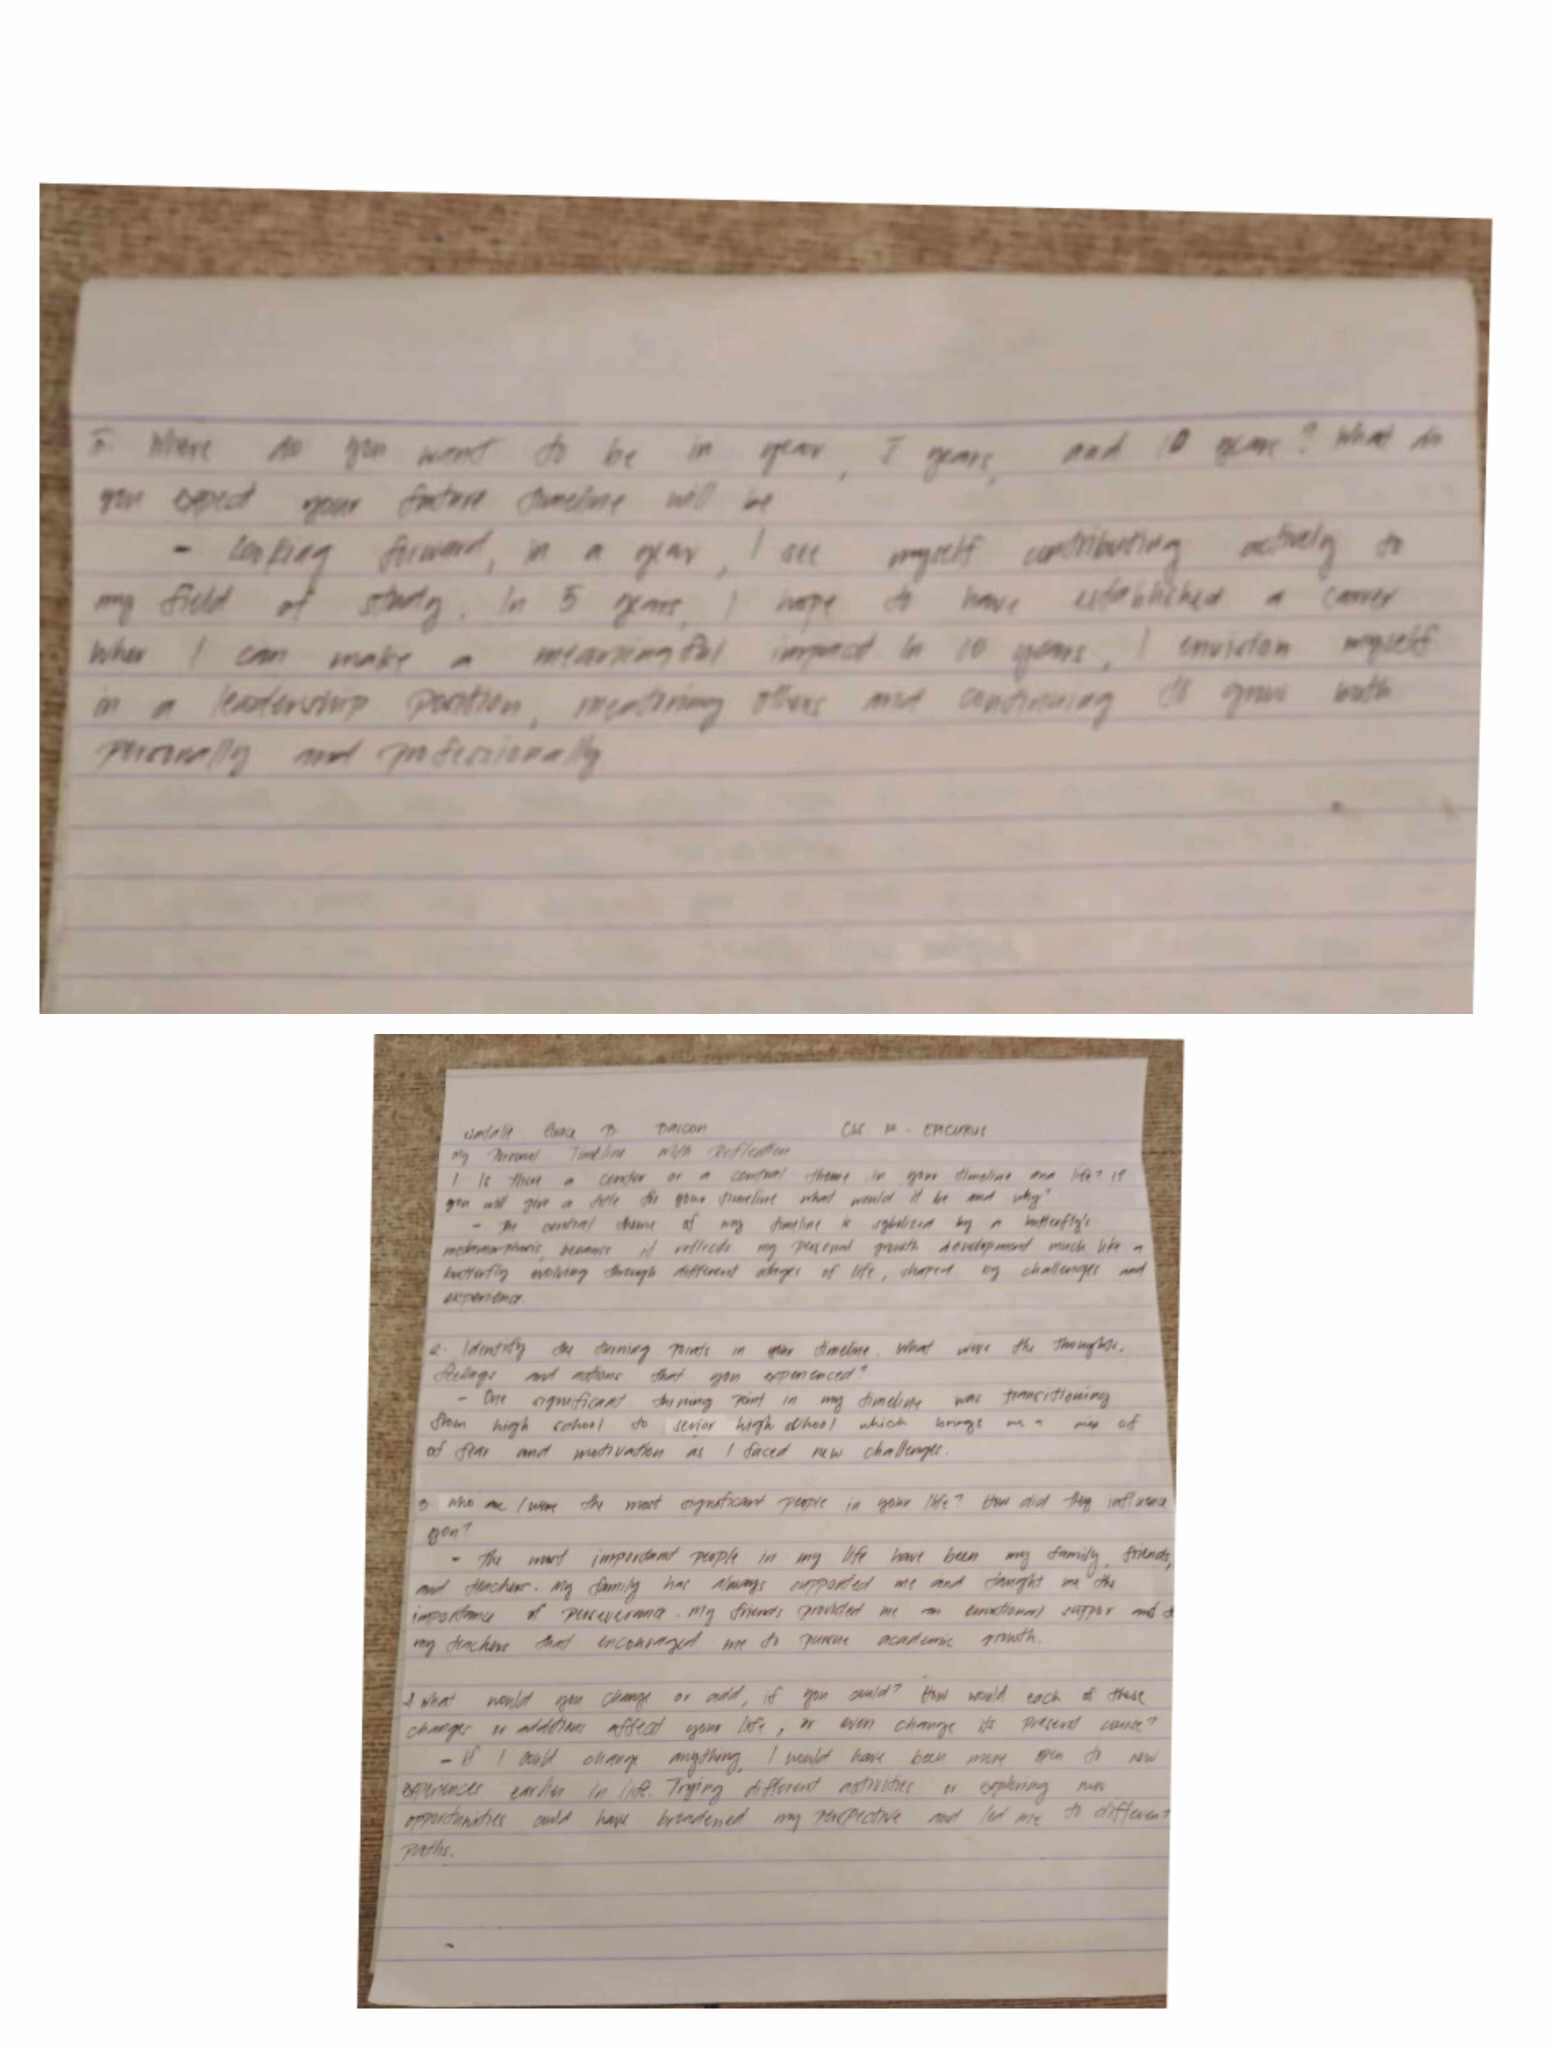 5. Where do you want to be in year, 5 years, and 10 years? What do
you expect your future timeline will be
- Looking forward, in a year, I see myself contributing actively to
my field of study. In 5 years, I hope to have established a career
wher I can make a meaningful impact In 10 years, I envision myself
in a leadership position, mentoring others and continuing to grow both
personally and professionally
Grace B.
My Personal Timeline with Reflection
1 Is there a center or a central theme in your timeline and life? if
you will give a title for your timeline what would it be and why?
- The central theme of my timeline is sybolized by a butterfly's
metamorphosis, because it reflects my personal growth development much like a
butterfly evolving through different stages of life, shaped by challenges and
experience.
2. Identify the turning points in your timeline. What were the thoughts,
feelings and actions that you experienced?
- One significant turning point in my timeline was transitioning
from high school to senior high school which brings me a mix of
of fear and motivation as I faced new challenges.
3. Who are / were the most significant people in your life? How did they influence
you?
- The most important people in my life have been my family, friends,
and teachers. My family has always supported me and taught me the
importance of perseverance. My friends provided me an emotional suppor and
my teachers that encouraged me to pursue academic growth.
4 What would you change or add, if you could? How would each of these
changes or additions affect your life, or even change its present course?
- If I could change anything, I would have been more open to new
experiences earlier in life. Trying different activities or exploring new
opportunities could have broadened my perspective and led me to different
paths.